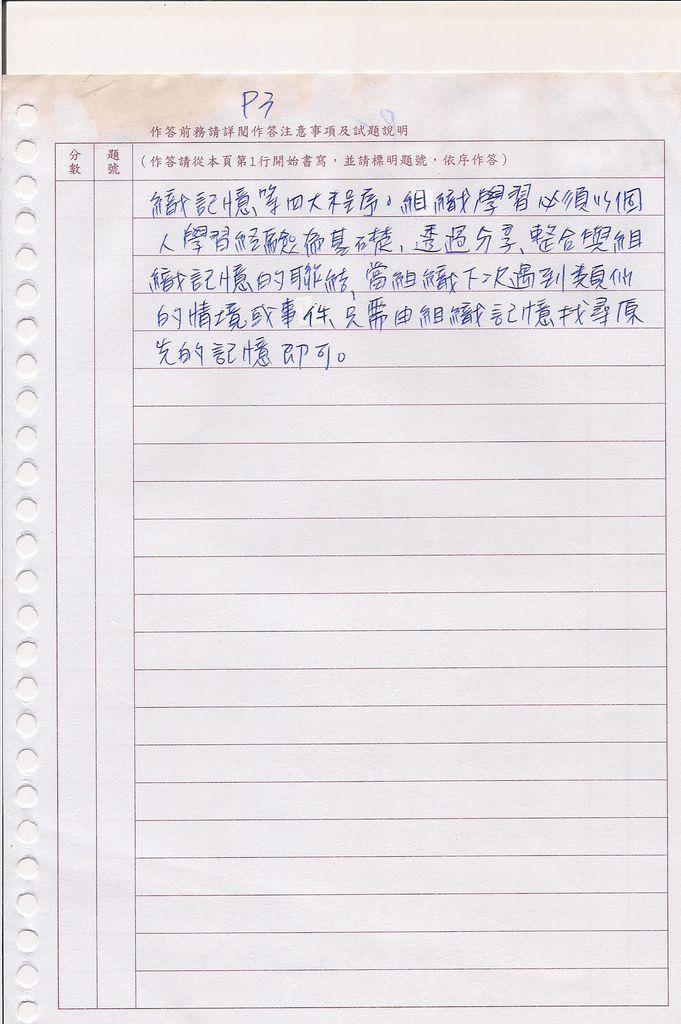 P3
作答前務請詳閱作答注意事項及試題說明
分數
題號
(作答請從本頁第1行開始書寫,並請標明題號,依序作答)
織記憶等四大程序。組織學習必須以個
人學習經驗為基礎、透過分享、整合與組
織記憶的聯結,當組織下次遇到類似
的情境或事件,只需由組織記憶找尋原
先的記憶即可。